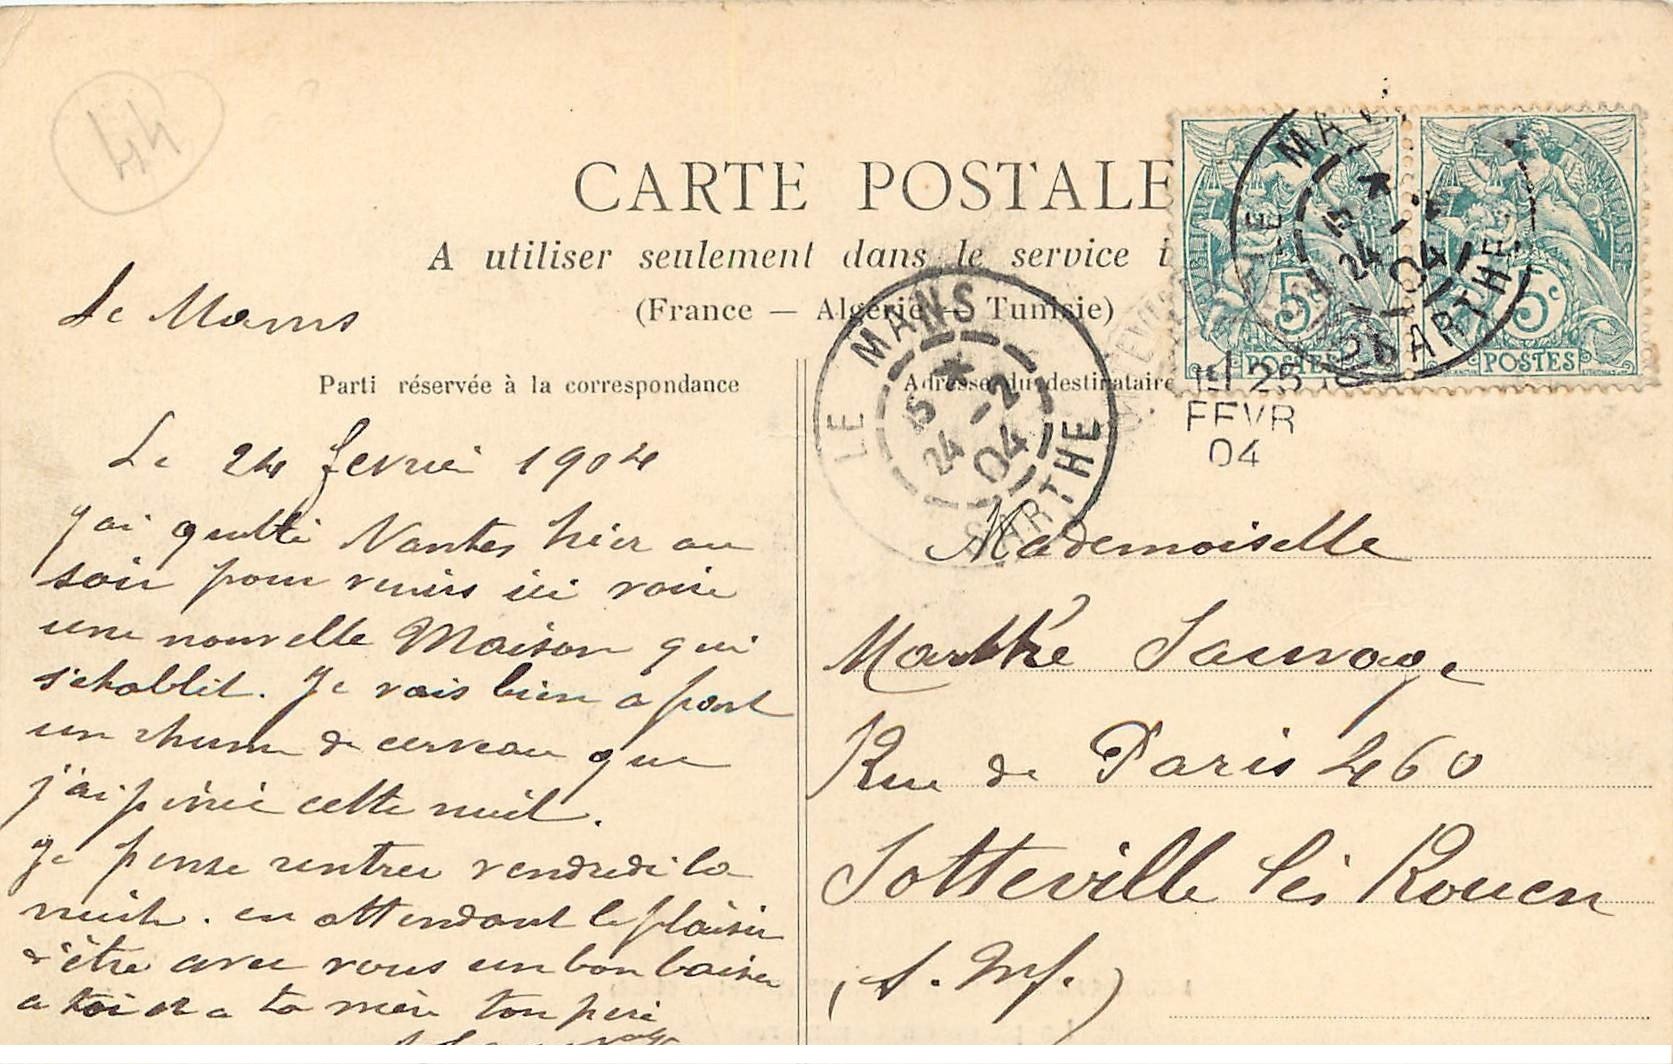 44
CARTE POSTALE
A utiliser seulement dans le service i
(France — Algérie — Tunisie)
Parti réservée à la correspondance
Adresse du destinataire
LE MANS
15 * 24 -2 04
SARTHE
LE MA
15 * 24 -2 04
SARTHE
5 5c
POSTES POSTES
25
FEVR
04
Le Mans
Le 24 fevrier 1904
j'ai quitté Nantes hier au
soir pour venir ici voir
une nouvelle Maison qui
s'etablit. Je vais bien a part
un rhume de cerveau que
j'ai pincé cette nuit.
Je pense rentrer vendredi la
nuit. en attendant le plaisir
d'être avec vous un bon baiser
a toi et a ta mère ton père
Mademoiselle
Marthe Sauvage
Rue de Paris 460
Sotteville lès Rouen
(S. Inf.)